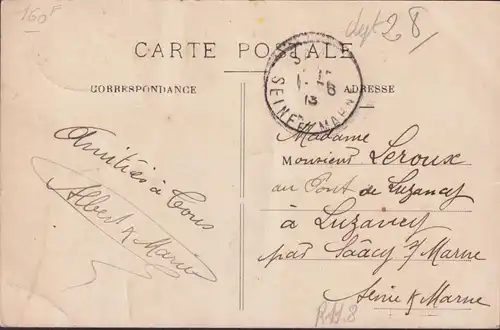 160F
dept 28
CARTE POSTALE
SEINE ET MARNE
13
CORRESPONDANCE
ADRESSE
Amitiés à Tous
Albert & Marie
Madame
Monsieur Leroux
au Pont de Luzancy
à Luzancy
par Saâcy s/ Marne
Seine & Marne
R19.8